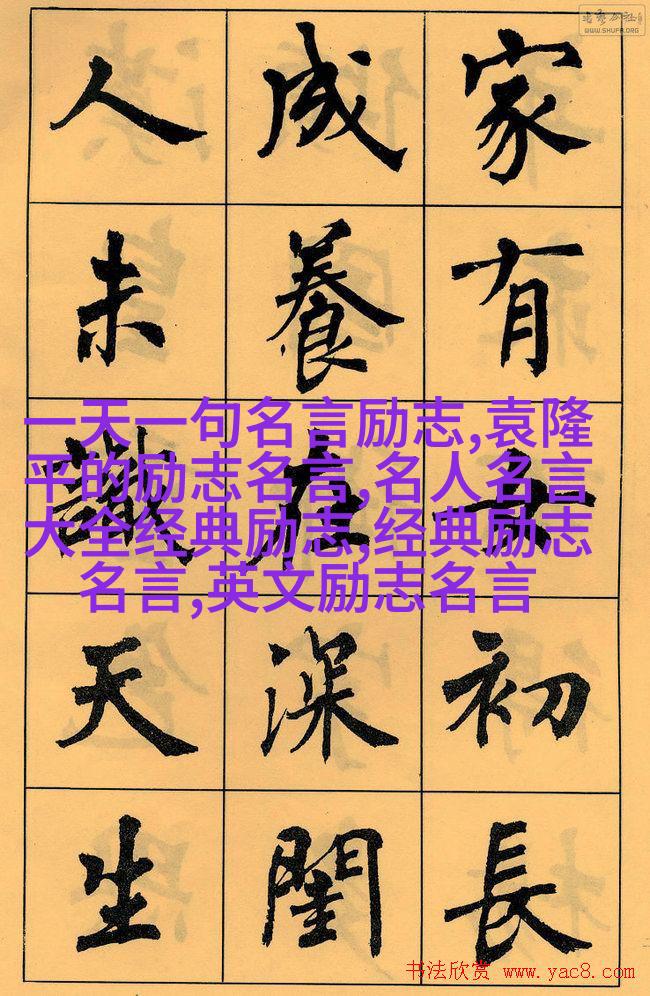 WWW.SHUFA.ORG
家有女初長
成養在深閨
人未識天生
一天一句名言励志,袁隆
平的励志名言,名人名言
大全经典励志,经典励志
名言,英文励志名言
书法欣赏 www.yac8.com